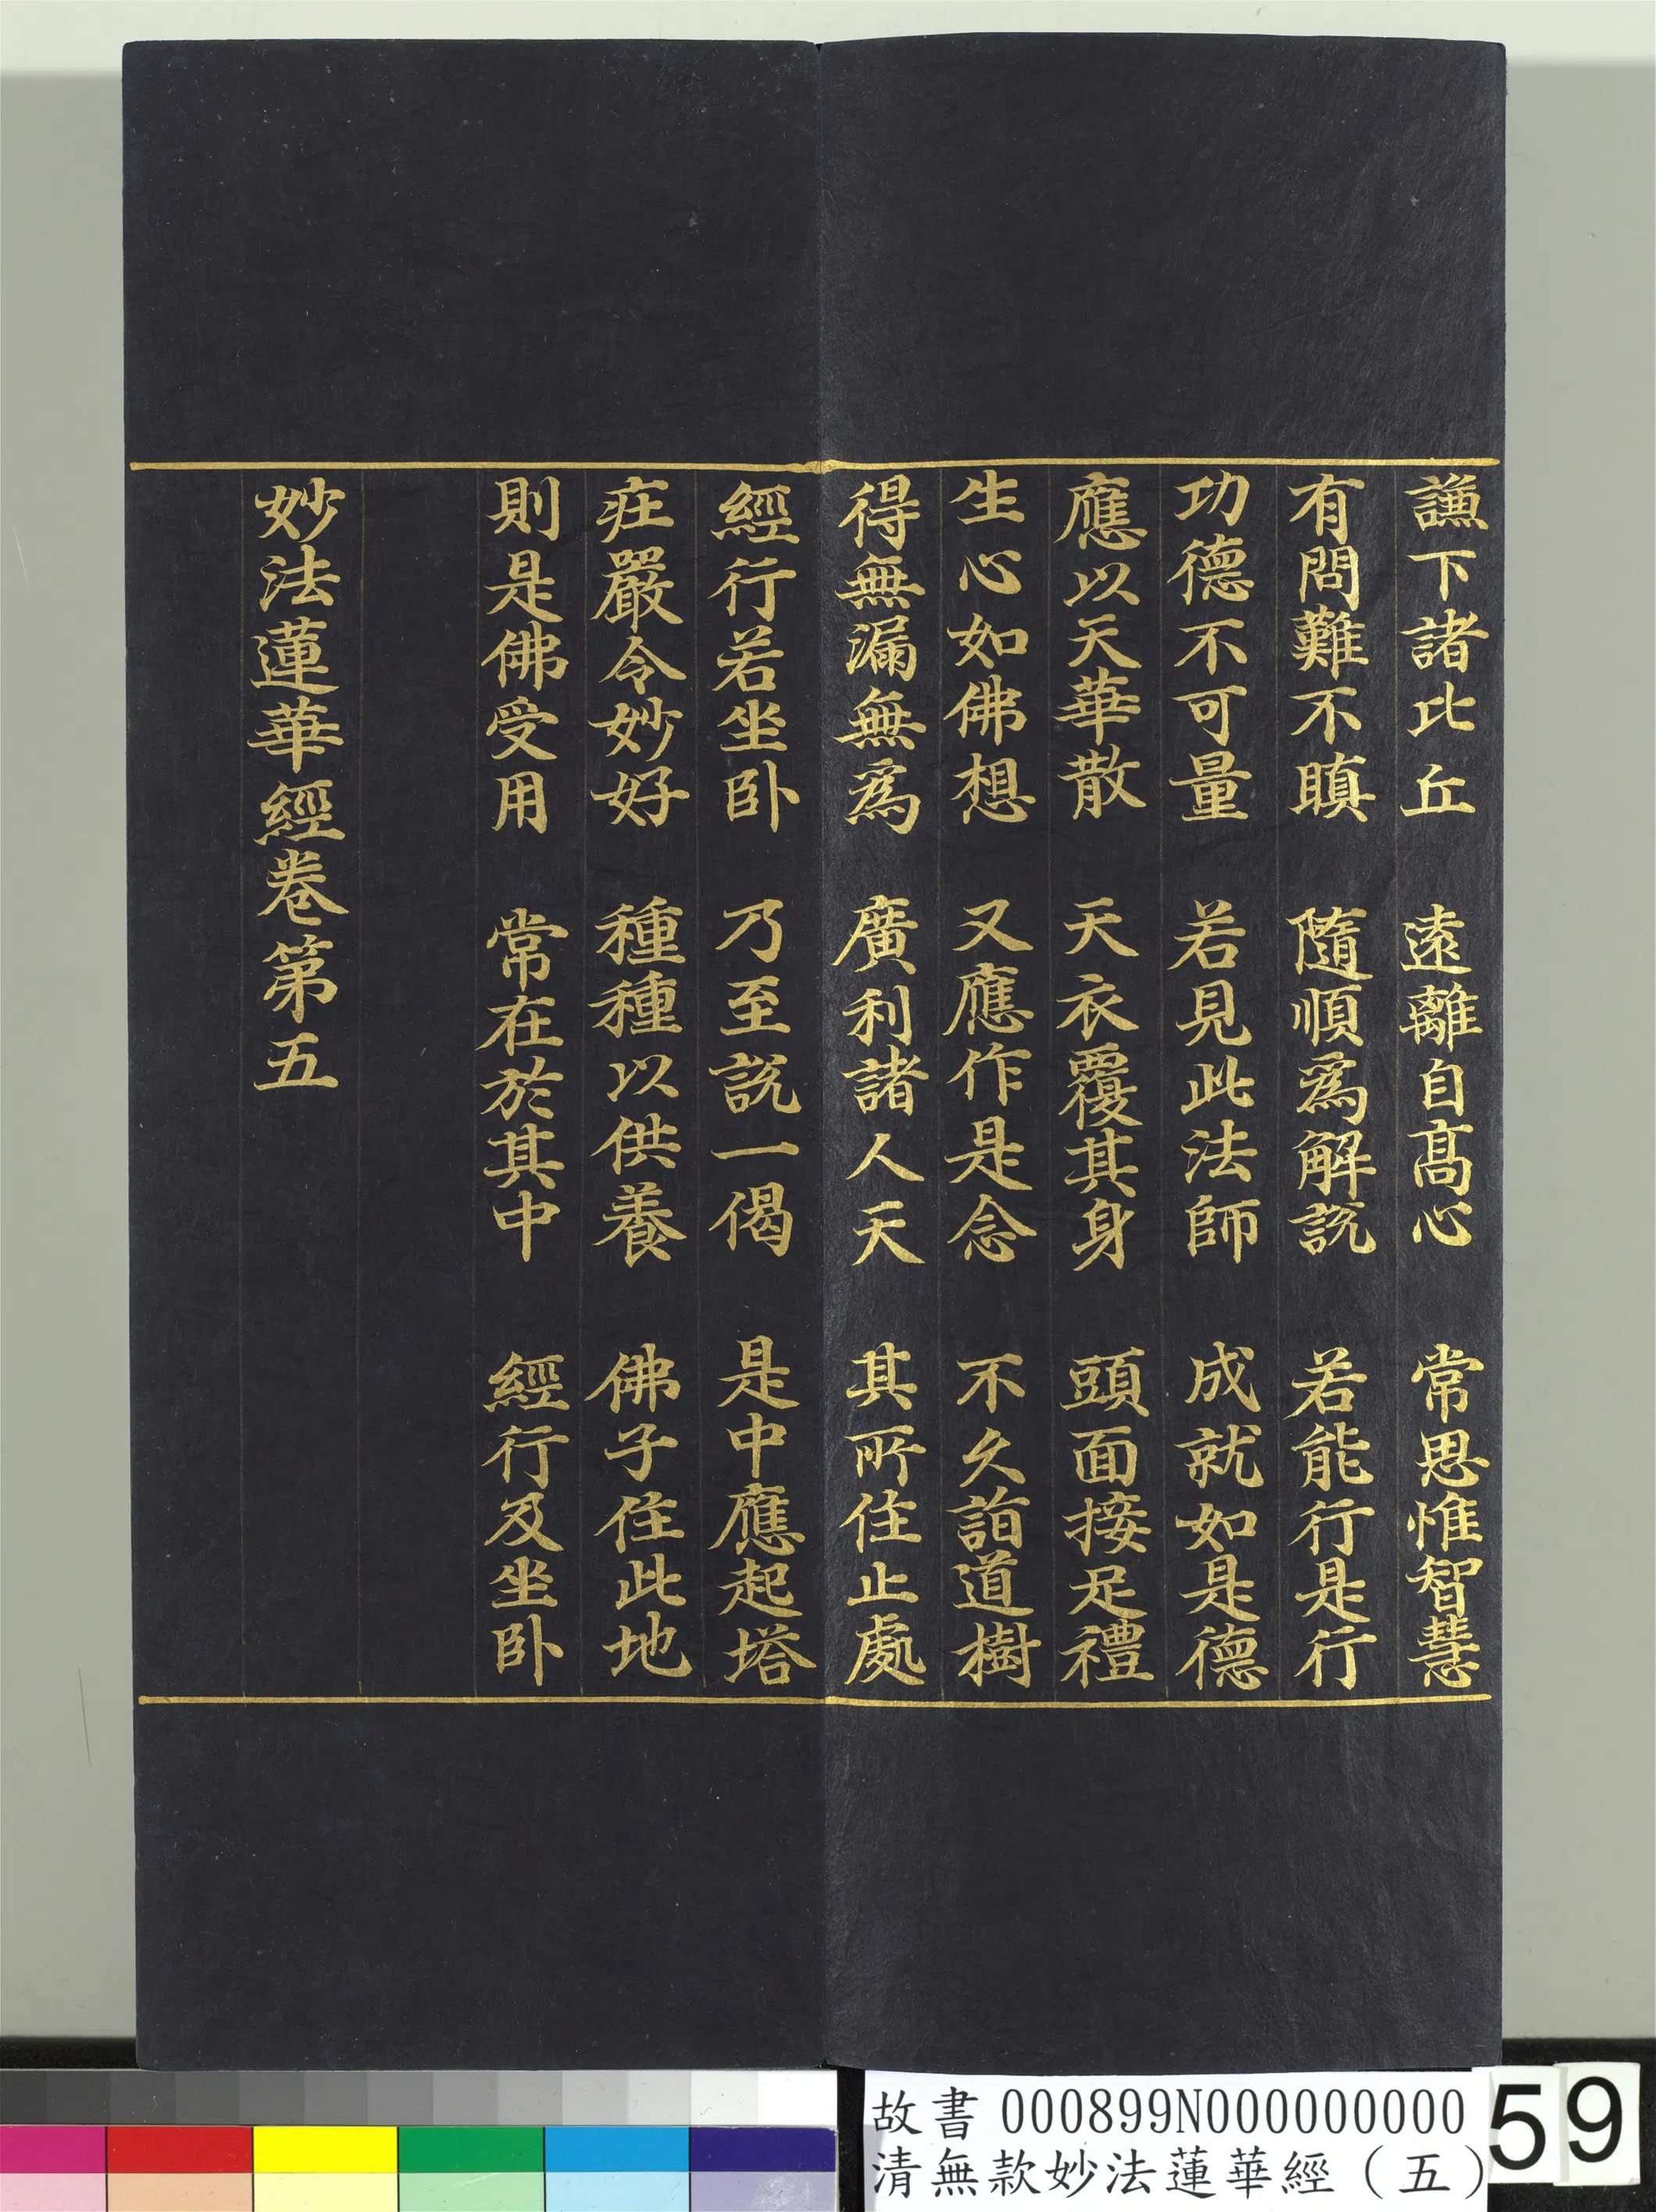 謙下諸比丘　遠離自髙心　常思惟智慧
有問難不瞋　隨順為解説　若能行是行
功德不可量　若見此法師　成就如是德
應以天華散　天衣覆其身　頭面接足禮
生心如佛想　又應作是念　不久詣道樹
得無漏無為　廣利諸人天　其所住止處
經行若坐卧　乃至説一偈　是中應起塔
疘嚴令妙好　種種以供養　佛子住此地
則是佛受用　常在於其中　經行及坐卧
妙法蓮華經卷第五
故書 000899N000000000
清無款妙法蓮華經（五）
59